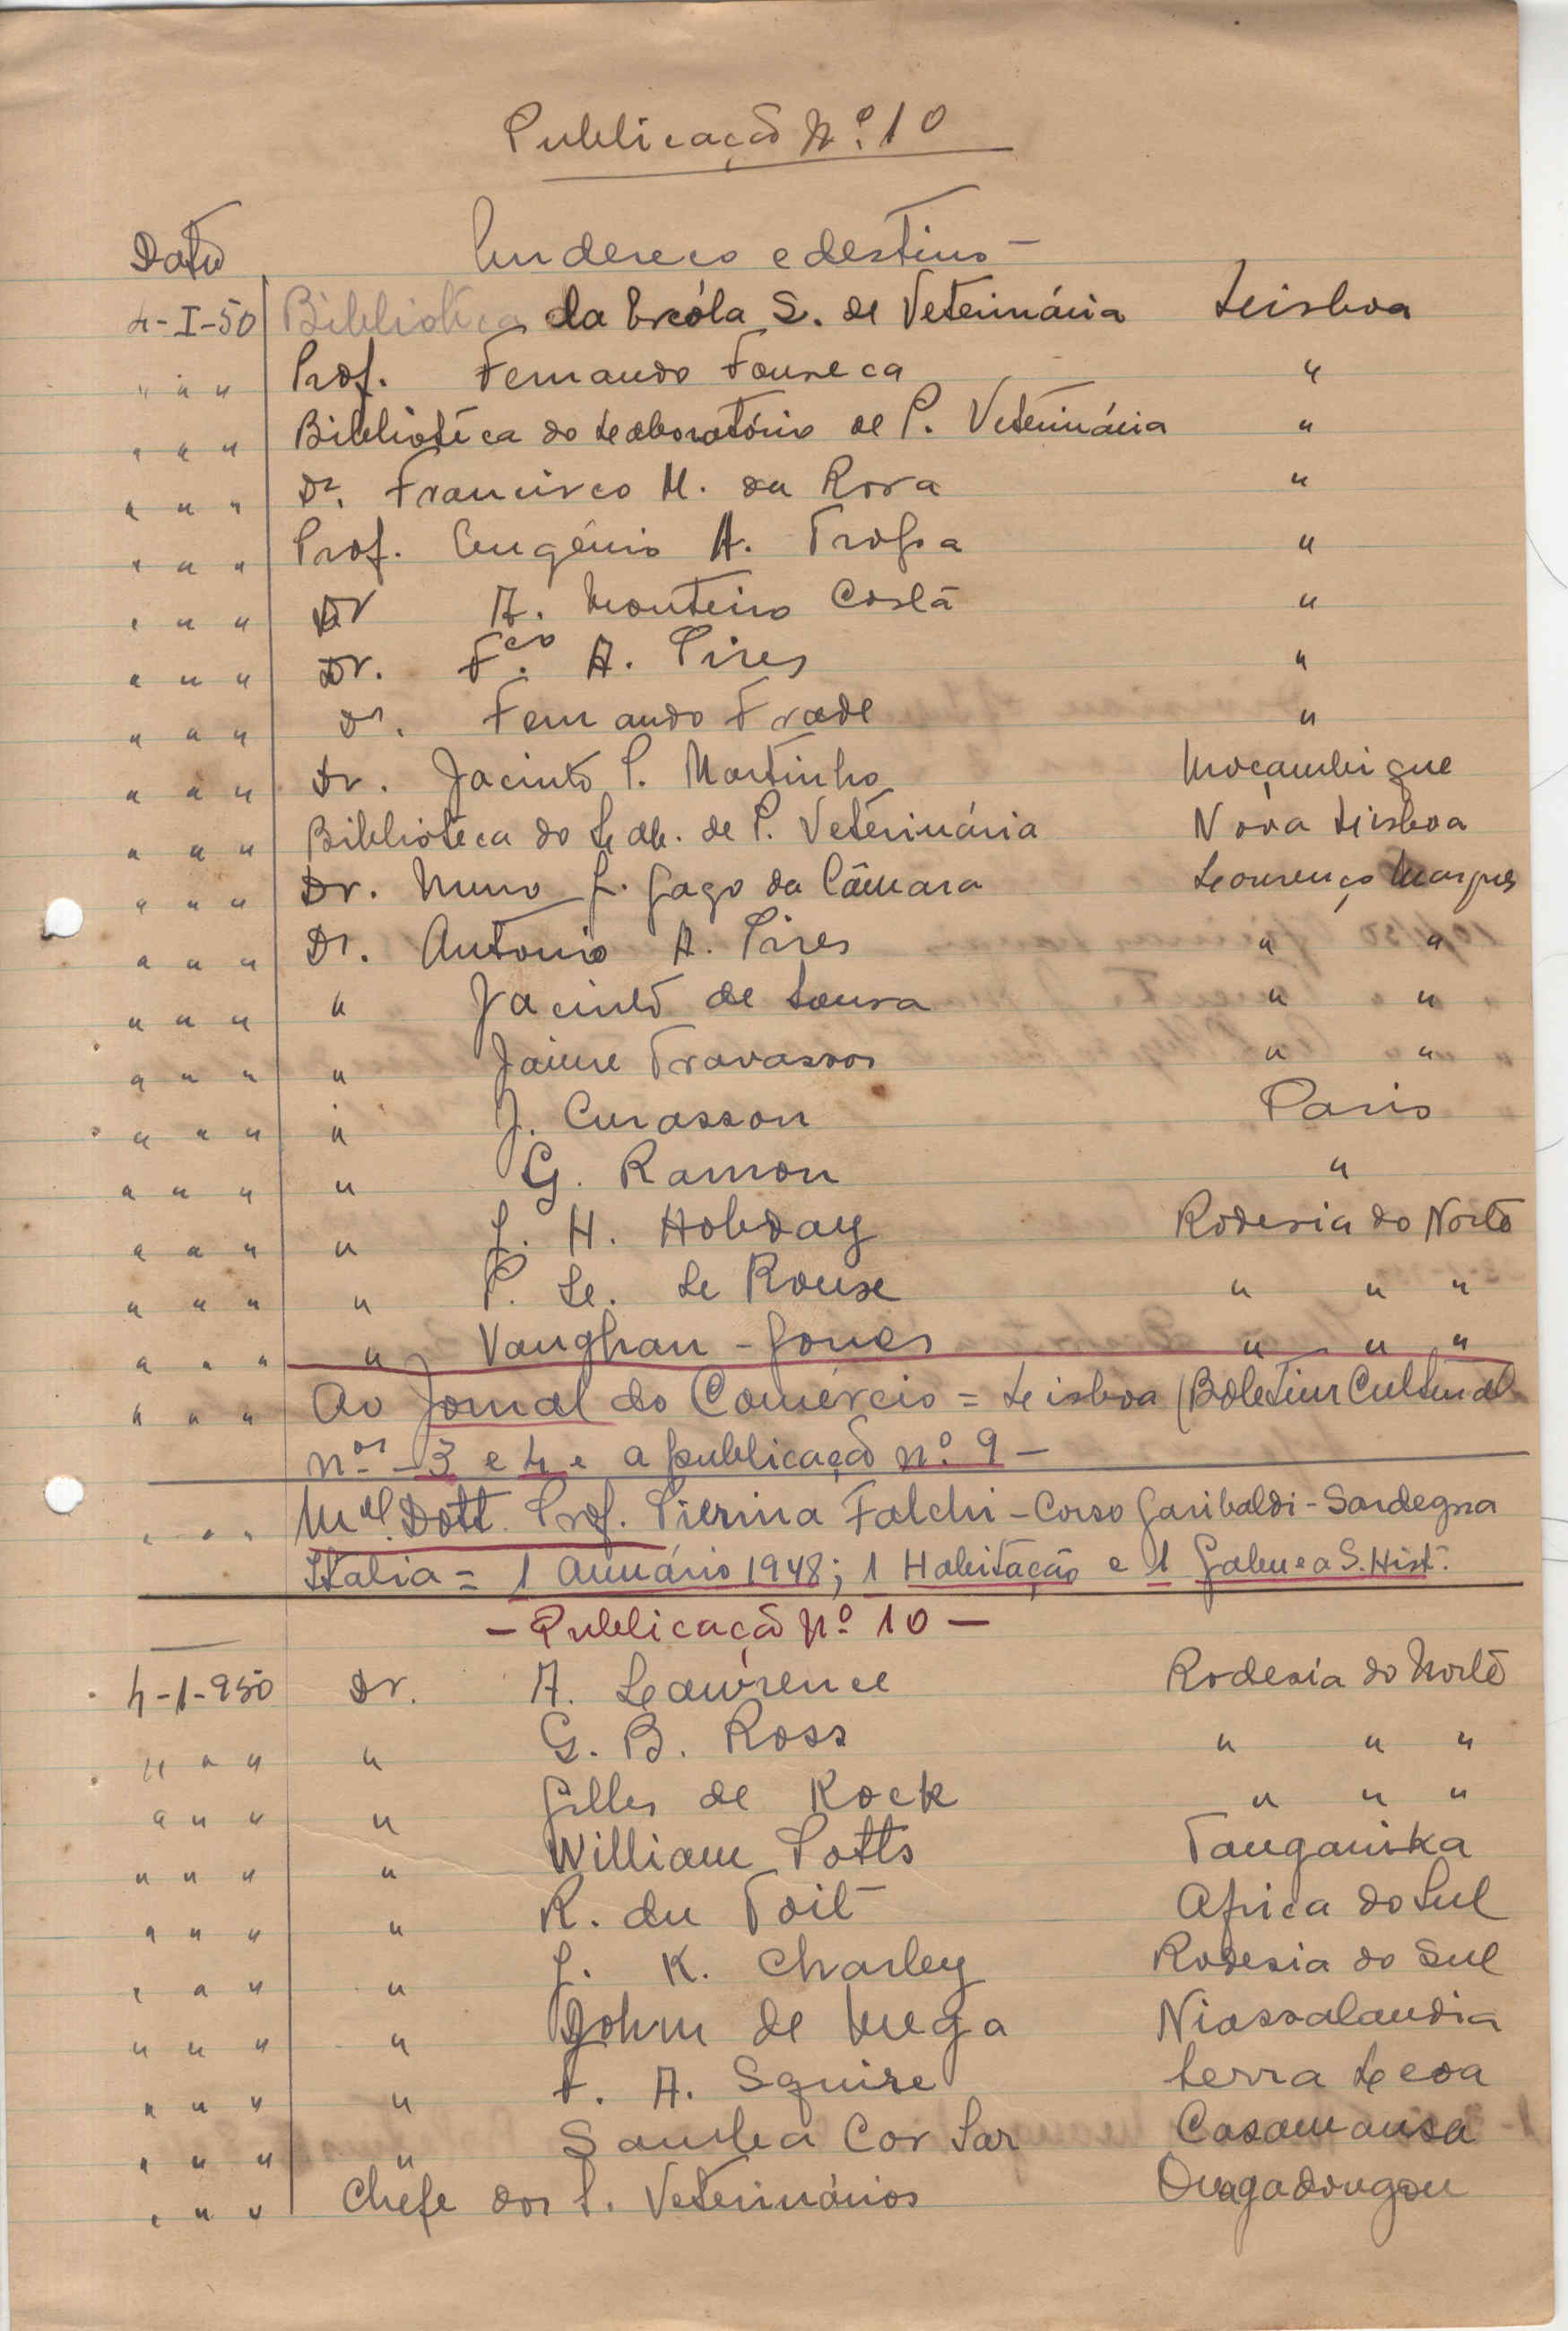 Publicação Nº. 10
Data Endereço e destino -
4-I-50 Biblioteca da Escóla S. de Veterinária Lisboa
" " " Prof. Fernando Fonseca "
" " " Bibliotéca do Laboratório de P. Veterinária "
" " " Dr. Francisco M. da Rosa "
" " " Prof. Eugénio A. Tropa "
" " " Dr A. Monteiro Costa "
" " " Dr. Fco. A. Pires "
" " " Dr. Fernando Frade "
" " " Dr. Jacinto P. Martinho Moçambique
" " " Bibliotéca do Lab. de P. Veterinária Nova Lisboa
" " " Dr. Nuno J. Gago da Câmara Lourenço Marques
" " " Dr. António A. Pires " "
" " " " Jacinto de Sousa " "
" " " " Jaime Travassos " "
" " " " J. Curasson Paris
" " " " G. Ramon "
" " " " J. H. Hobday Rodesia do Norte
" " " " P. L. Le Roux " " "
" " " " Vaughan - Jones " " "
" " " Ao Jornal do Comércio = Lisboa (Boletim Cultural
nos - 3 e 4 e a publicação nº. 9 -
" " " Dott. Prof. Pierina Falchi - Corso Garibaldi - Sardegna
Italia = 1 Anuário 1948; 1 Habitação e 1 S. Hist.
- Publicação Nº 10 -
4-1-950 Dr. A. Lawrence Rodesia do Norte
" " " " G. B. Ross " " "
" " " " Gilles de Kock " " "
" " " " William Potts Tanganika
" " " " R. du Toit Africa do Sul
" " " " J. K. Charley Rodesia do Sul
" " " " John de Mega Niassalandia
" " " " F. A. Squire Serra Leoa
" " " " Samba Cor Sar Casamansa
" " " Chefe dos S. Veterinários Ouagadougou